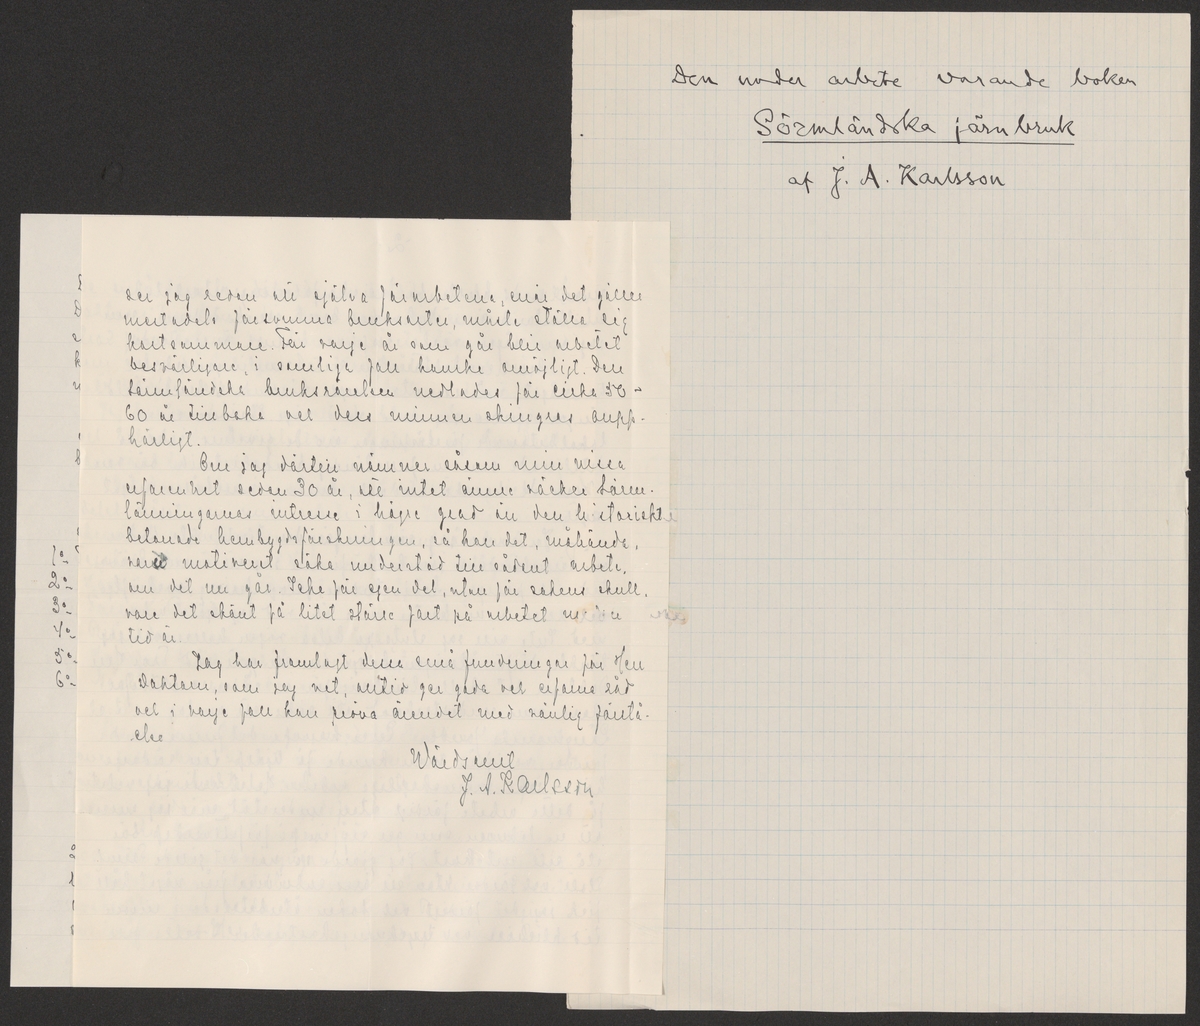 Den under arbete varande boken
Sörmländska järnbruk
af J. A. Karlsson
ser jag sedan att själva förarbetena, när det gäller
mestadels försvunna bruksorter, måste ställa sig
kostsammare. För varje år som går blir arbetet
besvärligare, i somliga fall kanske omöjligt. Den
sörmländska bruksrörelsen nedlades för cirka 50-
60 år tillbaka och dess minnen skingras oupp-
hörligt.
Om jag därtill nämner såsom min vissa
erfarenhet sedan 30 år, att intet ämne väcker Sörm-
länningarnas intresse i högre grad än den historiskt
betonade hembygdsforskningen, så kan det, måhända,
vara motiverat söka understöd till sådant arbete,
om det nu går. Icke för egen del, utan för sakens skull,
vore det skönt få litet större fart på arbetet
tid är.
Jag har framlagt dessa små funderingar för Herr
Doktorn, som jag vet, alltid ger goda och erfarna råd
och i varje fall kan pröva ärendet med vänlig förstå-
else
Wördsamt
J. A. Karlsson
1o
2o
3o
4o
5o
6o